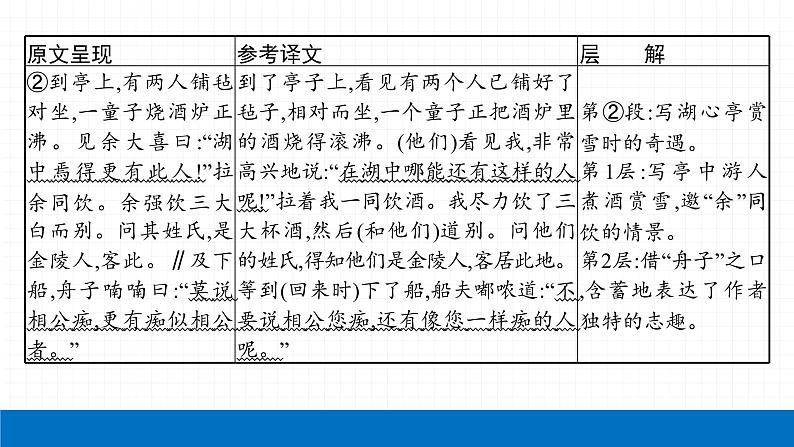 原文呈现
②到亭上,有两人铺毡
对坐,一童子烧酒炉正
沸。见余大喜曰:“湖
中焉得更有此人!”拉
余同饮。余强饮三大
白而别。问其姓氏,是
金陵人,客此。∥及下
船,舟子喃喃曰:“莫说
相公痴,更有痴似相公
者。”
参考译文
到了亭子上,看见有两个人已铺好了
毡子,相对而坐,一个童子正把酒炉里
的酒烧得滚沸。(他们)看见我,非常
高兴地说:“在湖中哪能还有这样的人
呢!”拉着我一同饮酒。我尽力饮了三
大杯酒,然后(和他们)道别。问他们
的姓氏,得知他们是金陵人,客居此地。
等到(回来时)下了船,船夫嘟哝道:“不
要说相公您痴,还有像您一样痴的人
呢。”
层 解
第②段:写湖心亭赏
雪时的奇遇。
第1层:写亭中游人
煮酒赏雪,邀“余”同
饮的情景。
第2层:借“舟子”之口
,含蓄地表达了作者
独特的志趣。